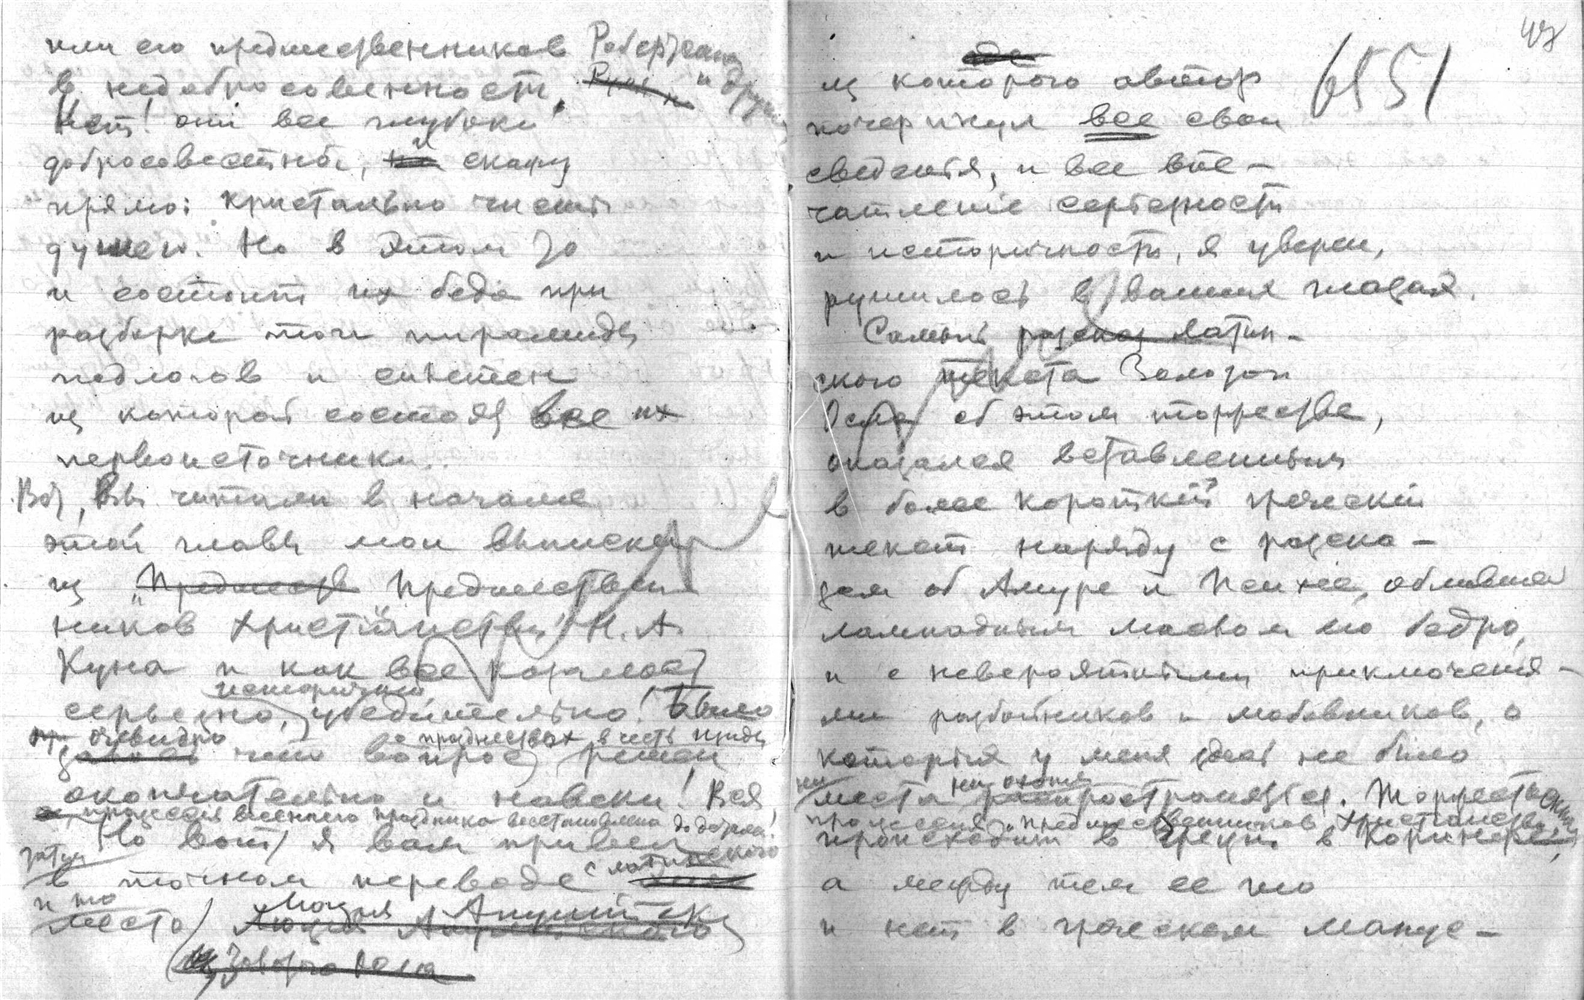 или его предшественников Робертсона
и других
в недобросовестности.
Нет! они все глубоко
добросовестны, я скажу
прямо: кристально чисты
душею. Но в этом то
и состоит их беда при
разборке той пирамиды
подлогов и
из которой состоят все их
первоисточники.
Вот, Вы читали в начале
этой главы мои выписки
из "Предшеств Предшествен
ников Христианства" Н. А.
Куна и как все казалось
исторично
серьезно, убедительно! Было
очевидно о празднествах в честь Изиды
что вопрос решен
окончательно и навеки! Вся
процессия весеннего праздника восстановлена
Но вот я вам привел
затем с латинского
в точном переводе
и то
место
Апулей
47
6551
из которого автор
почерпнул все свои
сведения, и все впе-
чатление серьезности
и историчности, я уверен,
рушилось в ваших глазах.
Самый рассказ латин-
ского текста Золотого
Осла об этом торжестве,
оказался вставленным
в более короткий греческий
текст наряду с расска-
зом об Амуре и Психее, облившей
лампадным маслом его бедро,
и с невероятными приключения-
ми разбойников и любовников, о
которых у меня здесь не было
ни места ни охоты распространяться. Торжественная
процессия "Предшественников Христианства"
происходит в Греции в Коринфе,
а между тем ее то
и нет в греческом ману-